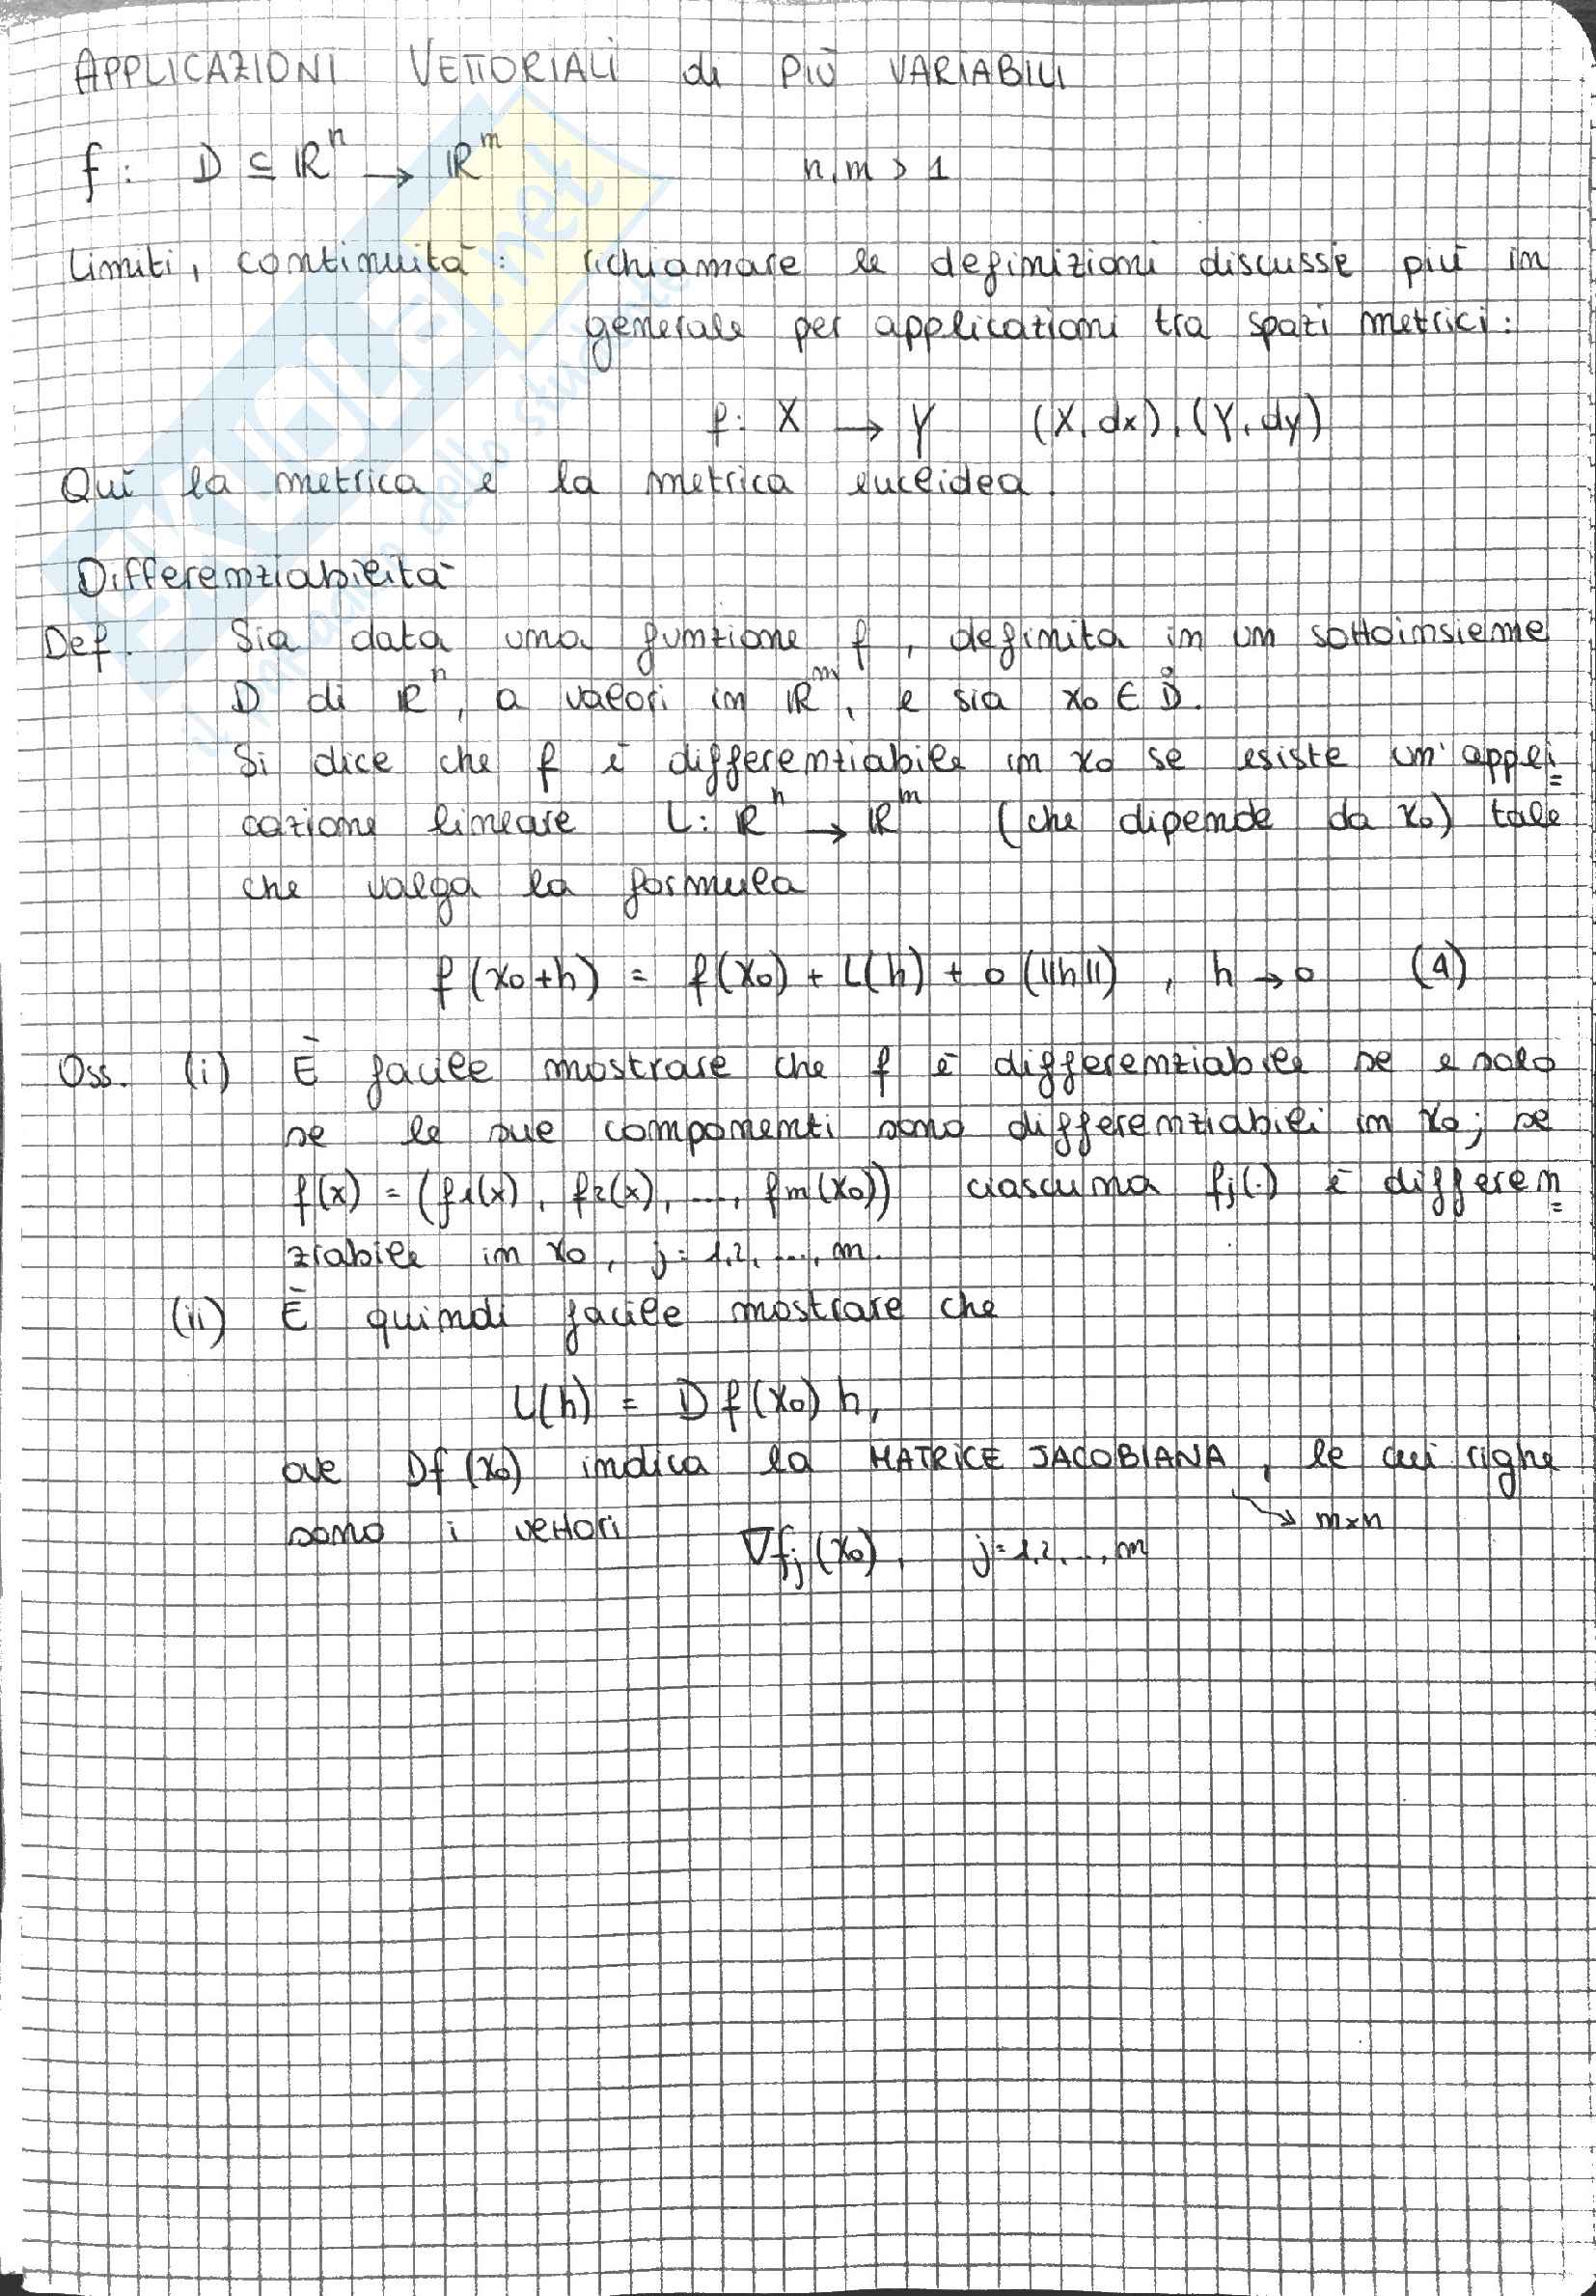 APPLICAZIONI VETTORIALI di PIÙ VARIABILI
f: D ⊆ ℝⁿ → ℝᵐ n, m > 1
Limiti, continuità: richiamare le definizioni discusse più in
generale per applicazioni tra spazi metrici:
f: X → Y (X, dx), (Y, dy)
Qui la metrica è la metrica euclidea.
Differenziabilità
Def. Sia data una funzione f, definita in un sottoinsieme
D di ℝⁿ, a valori in ℝᵐ, e sia x₀ ∈ D̊.
Si dice che f è differenziabile in x₀ se esiste un'appli=
cazione lineare L: ℝⁿ → ℝᵐ (che dipende da x₀) tale
che valga la formula
f(x₀+h) = f(x₀) + L(h) + o(||h||), h → 0 (1)
Oss. (i) È facile mostrare che f è differenziabile se e solo
se le sue componenti sono differenziabili in x₀; se
f(x) = (f₁(x), f₂(x), ..., fm(x₀)) ciascuna fj(·) è differen=
ziabile in x₀, j=1,2,...,m.
(ii) È quindi facile mostrare che
L(h) = Df(x₀)h,
ove Df(x₀) indica la MATRICE JACOBIANA, le cui righe
→ m×n
sono i vettori ∇fj(x₀), j=1,2,...,m
SKUOLA.net
il paradiso dello studente